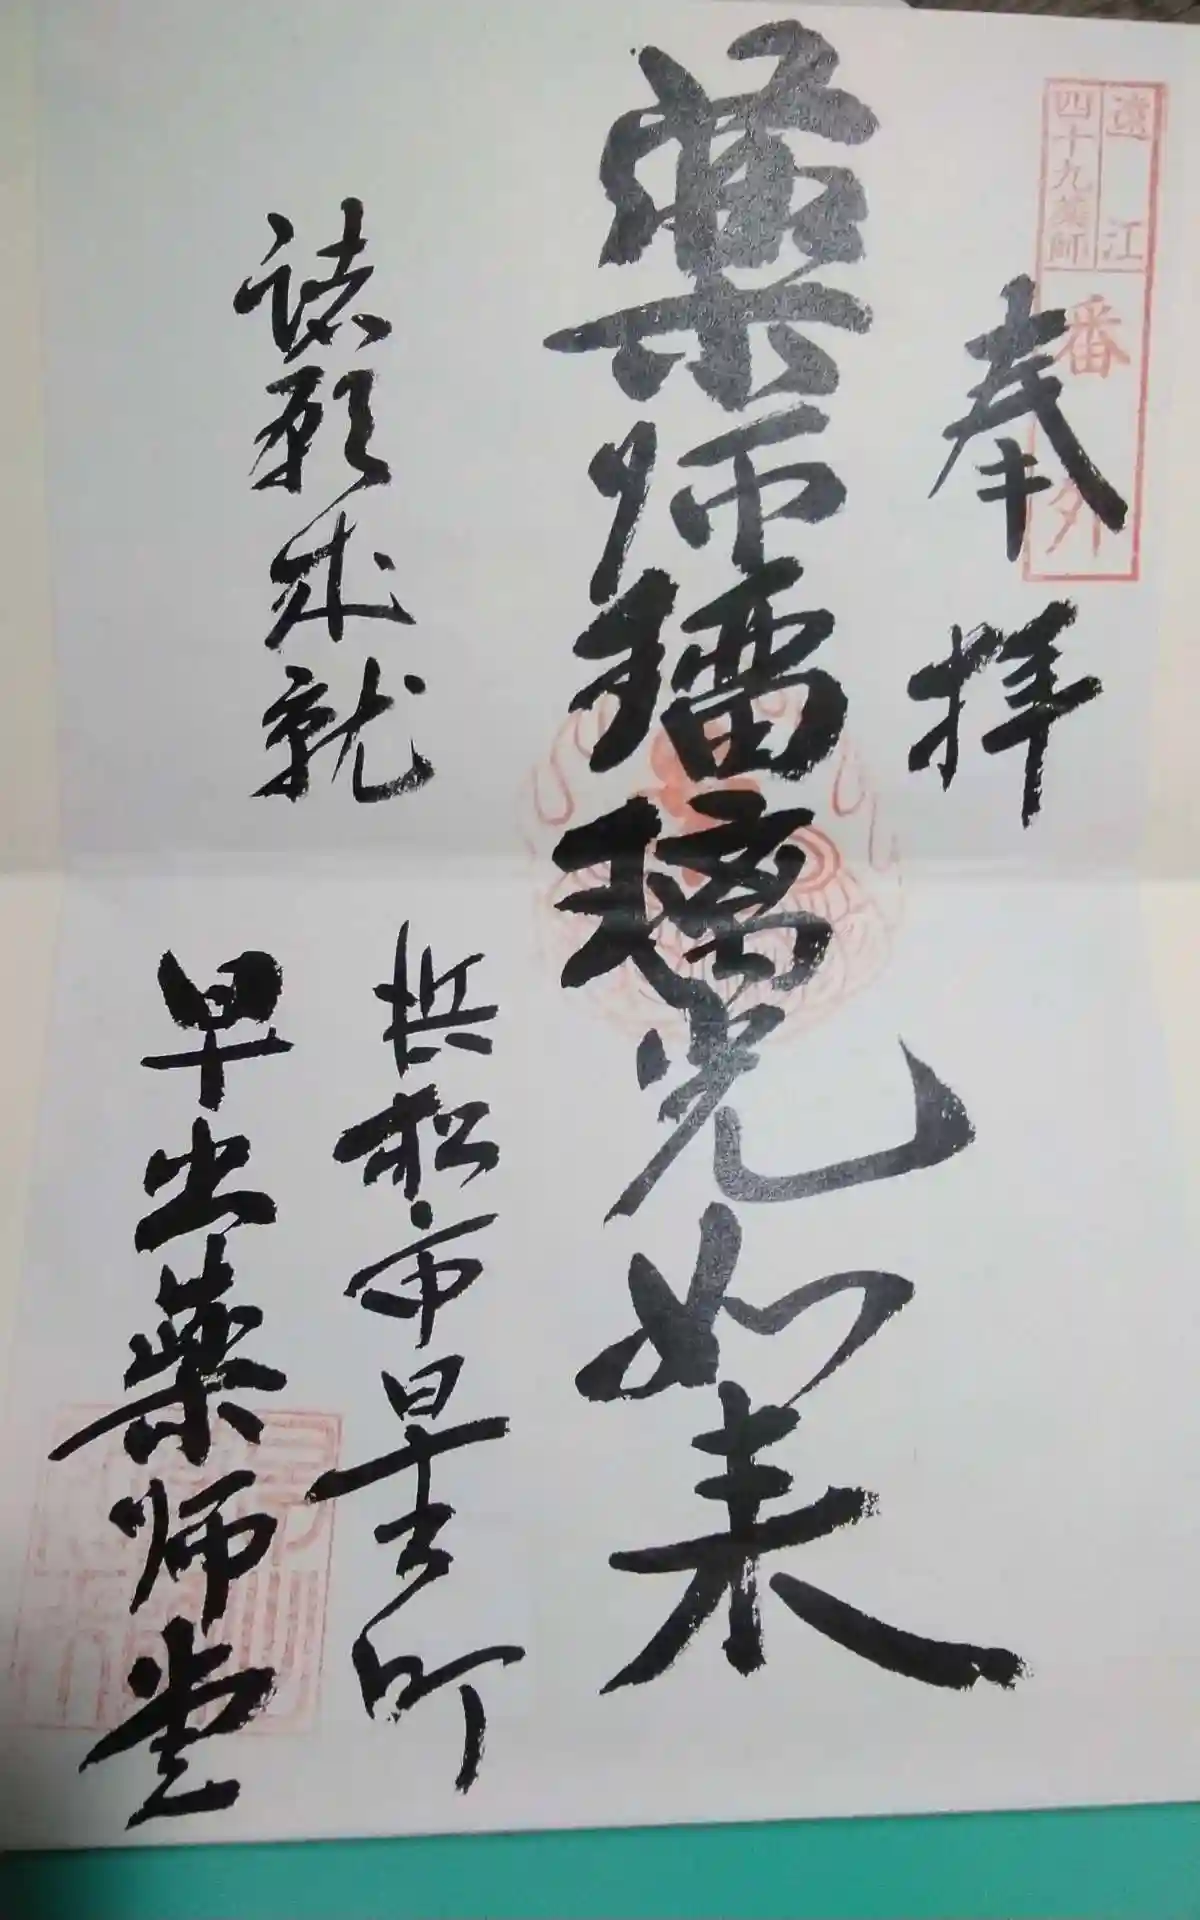 遠江
四十九薬師
番外
奉拝
薬師瑠璃光如来
諸願成就
浜松市早出町
早出薬師堂